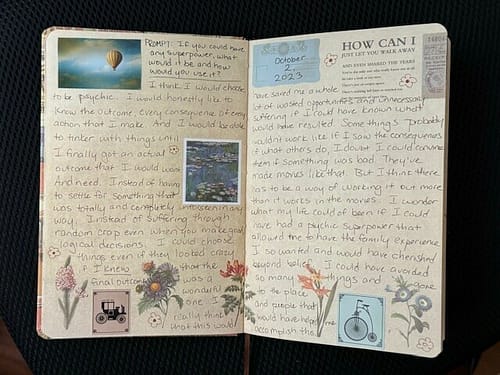 PROMPT: If you could have
any superpower, what
would it be and how
would you use it?
I think I would choose
to be psychic. I would honestly like to
know the outcome, every consequence of every
action that I make. And I would be able
to tinker with things until
I finally got an actual
outcome that I would want
And need. Instead of having
to settle for something that
was totally and completely unforeseen in any
way. Instead of suffering through
random crap even when you make good,
logical decisions. I could choose
things even if they looked crazy
if I knew that the
final outcome was a
wonderful
one. I
really think
that this would
October
2,
2023
HOW CAN I
JUST LET YOU WALK AWAY
AND EVEN SHARED THE YEARS
have saved me a whole
lot of wasted opportunities and unnecessary
suffering if I could have known what
would have resulted. Some things probably
wouldn't work like if I saw the consequences
of what others do, I doubt I could convince
them if something was bad. They've
made movies like that. But I think there
has to be a way of working it out more
than it works in the movies. I wonder
what my life could of been if I could
have had a psychic superpower that
allowed me to have the family experience
I so wanted and would have cherished
beyond belief. I could have avoided
so many things and gone
to the place
and people that
would have helped me
accomplish this.